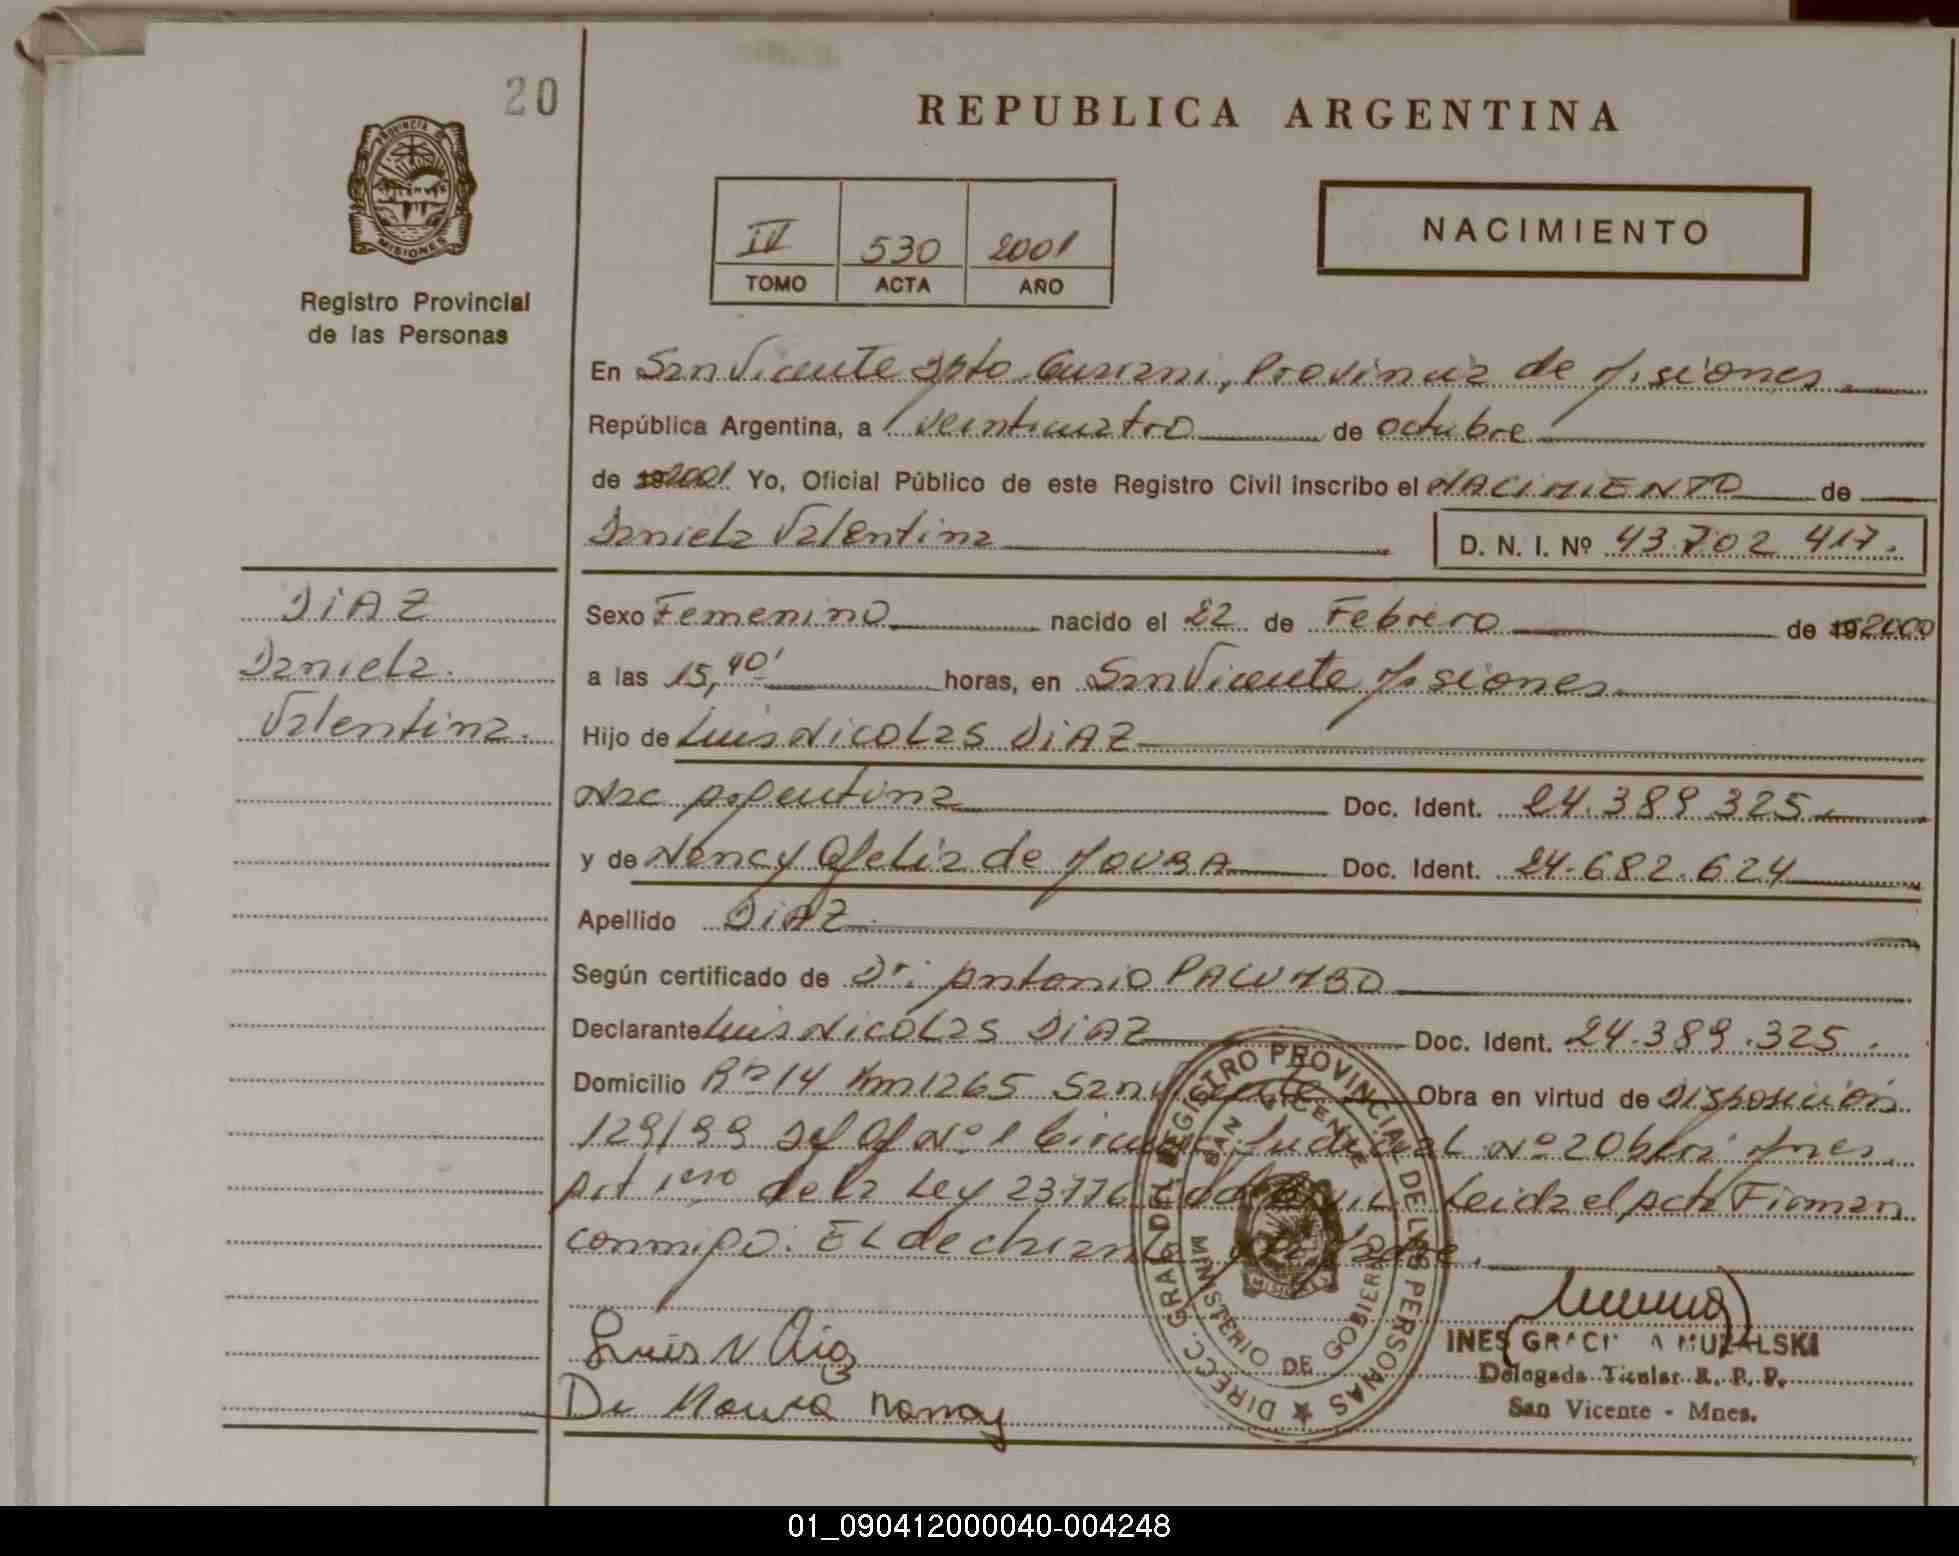 20
REPUBLICA ARGENTINA
PROVINCIA DE MISIONES
Registro Provincial
de las Personas
IV 530 2001
TOMO ACTA AÑO
NACIMIENTO
En San Vicente Dpto Guarani, Provincia de Misiones
República Argentina, a veinticuatro de octubre
de 192001 Yo, Oficial Público de este Registro Civil inscribo el NACIMIENTO de
Daniela Valentina D. N. I. Nº 43.702 417.
DIAZ
Daniela.
Valentina.
Sexo Femenino nacido el 22 de Febrero de 192000
a las 15,40' horas, en San Vicente Misiones
Hijo de Luis Nicolas DIAZ
Nac argentina Doc. Ident. 24.389.325.
y de Nancy Ofelia de MOURA Doc. Ident. 24.682.624
Apellido DIAZ
Según certificado de Dr: Antonio
Declarante Luis Nicolas DIAZ Doc. Ident. 24.389.325.
Domicilio Rta 14 Km 1265 San Vicente Obra en virtud de Disposición
129/99 del Of Nº 1 Circuns. Judicial Nº 2 Obera Mnes.
Art 1ero de la Ley 23776 Leida el acta Firman
conmigo: EL declarante y la Madre.
Luis N Diaz
De Moura Nancy
DIRECC. GRAL. DEL REGISTRO PROVINCIAL DE LAS PERSONAS
SAN VICENTE
MINISTERIO DE GOBIERNO
INES MUZALSKI
Delegada Titular R. P. P.
San Vicente - Mnes.
01_090412000040-004248